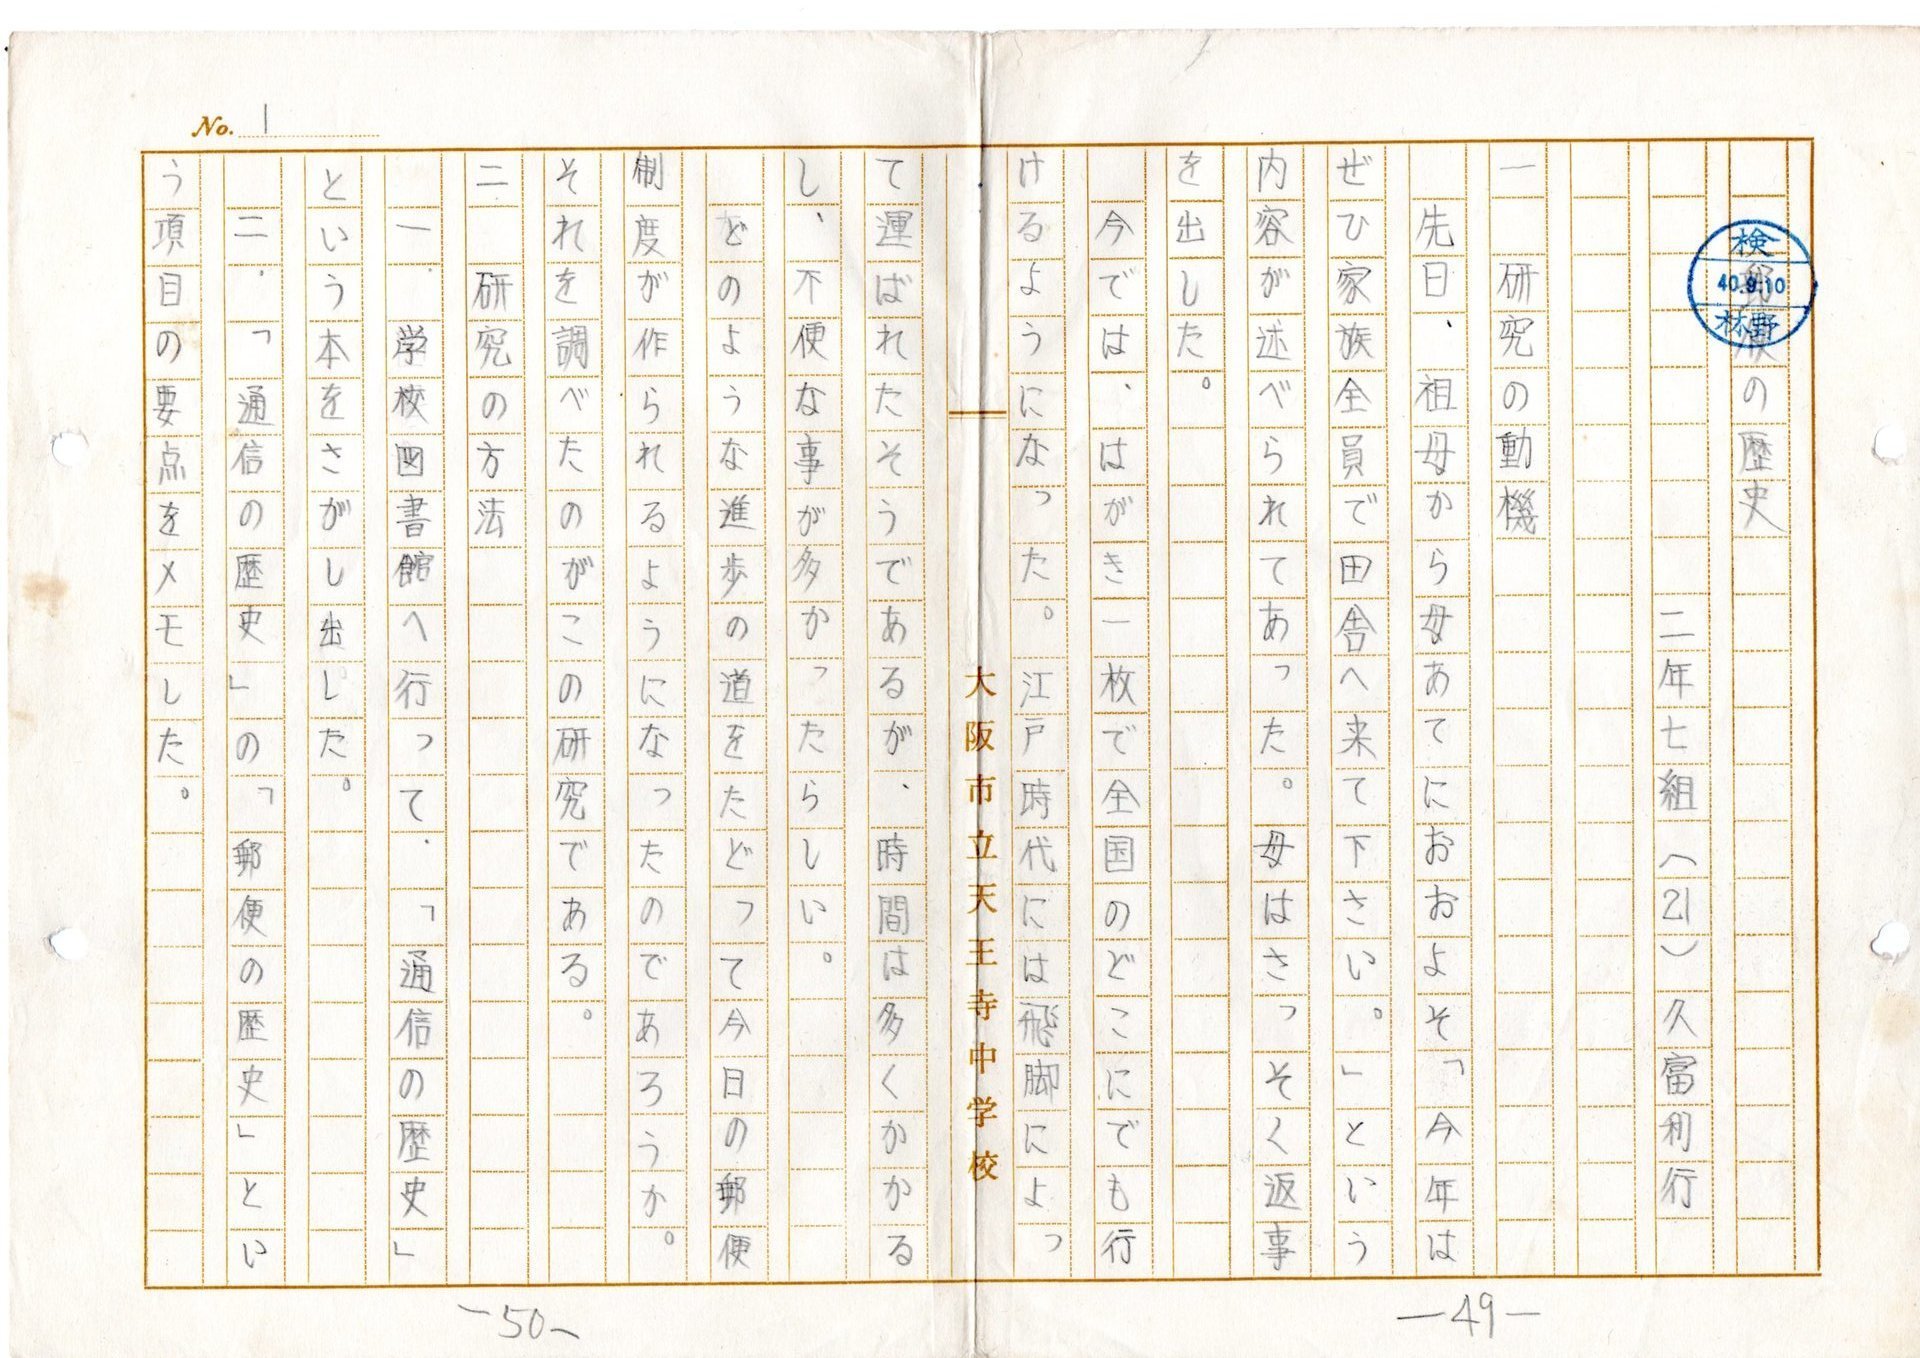 No. 1
郵便の歴史
検
40.9.10
林野
二年七組(21)久富利行
一 研究の動機
先日、祖母から母あてにおおよそ「今年は
ぜひ家族全員で田舎へ来て下さい。」という
内容が述べられてあった。母はさっそく返事
を出した。
今では、はがき一枚で全国のどこにでも行
けるようになった。江戸時代には飛脚によっ
大阪市立天王寺中学校
て運ばれたそうであるが、時間は多くかかる
し、不便な事が多かったらしい。
どのような進歩の道をたどって今日の郵便
制度が作られるようになったのであろうか。
それを調べたのがこの研究である。
二 研究の方法
一.学校図書館へ行って、「通信の歴史」
という本をさがし出した。
二.「通信の歴史」の「郵便の歴史」とい
う項目の要点をメモした。
-49-
-50-